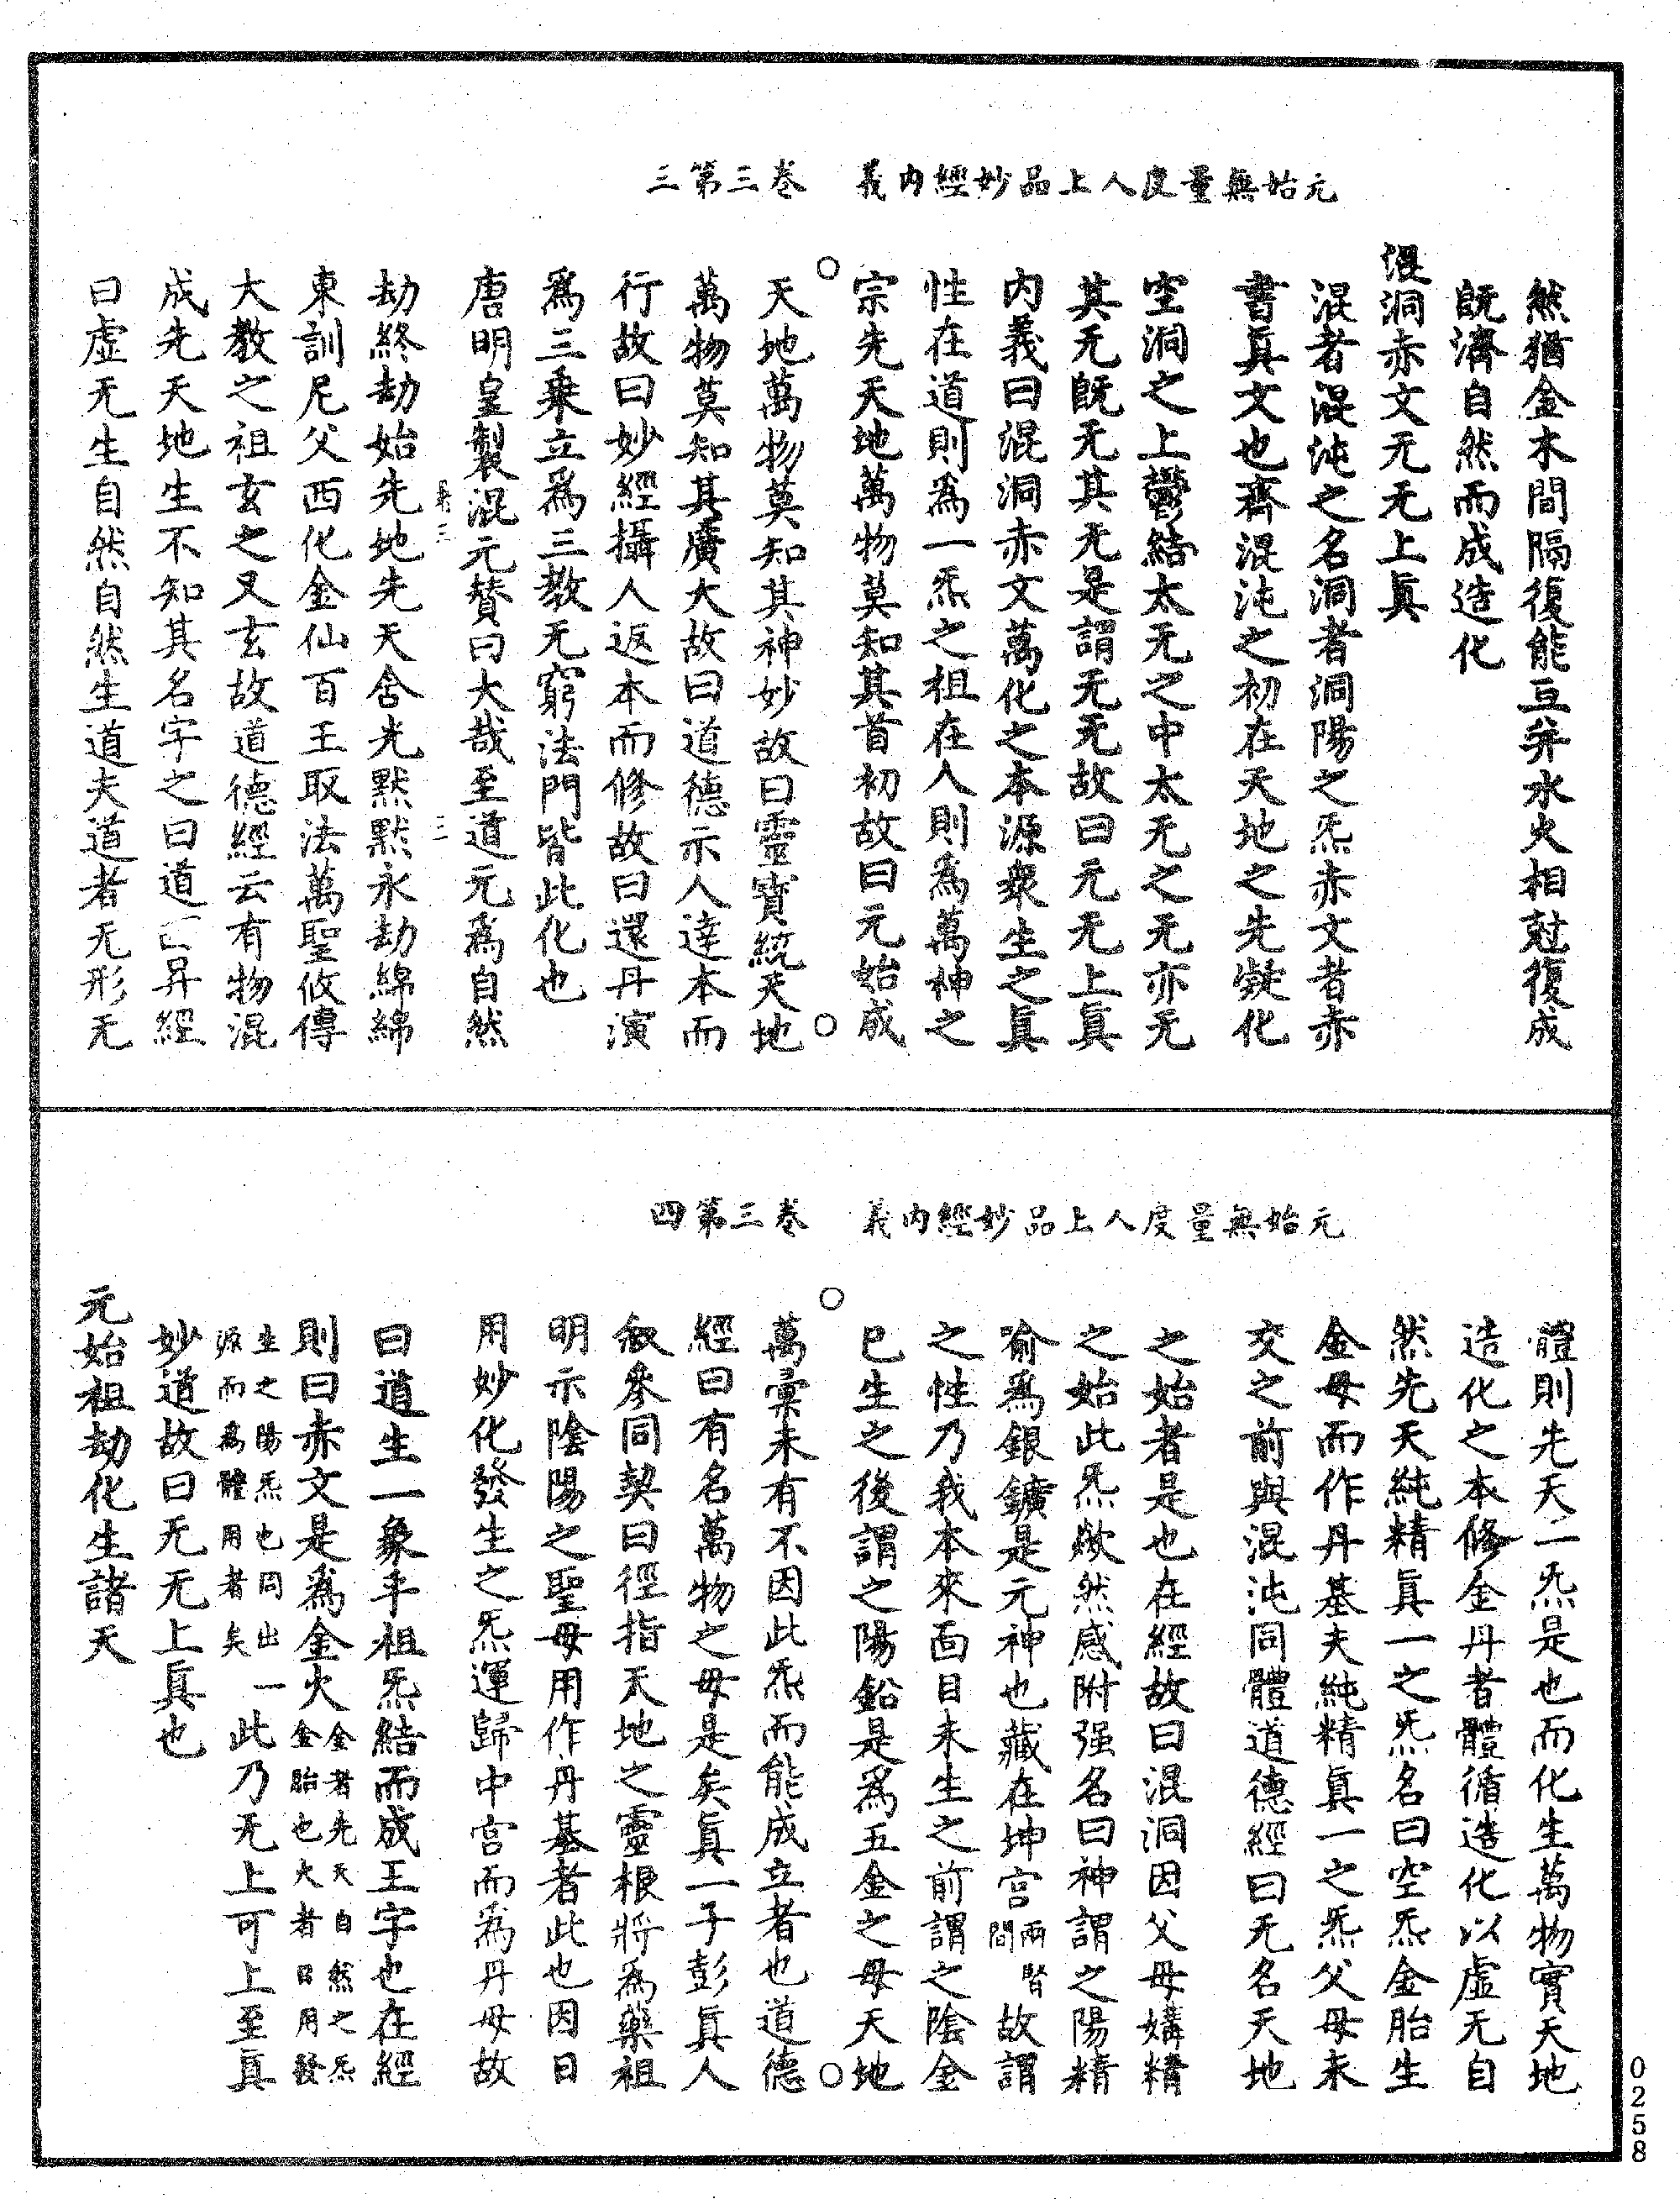 元始無量度人上品妙經内義　卷三第三
然猶金木間隔復能互并水火相尅復成
既濟自然而成造化
混洞赤文无无上眞
混者混沌之名洞者洞陽之炁赤文者赤
書眞文也齊混沌之初在天地之先凝化
空洞之上鬱結太无之中太无之无亦无
其无既无其无是謂无无故曰元无上眞
内義曰混洞赤文萬化之本源衆生之眞
性在道則爲一炁之祖在人則爲萬神之
宗先天地萬物莫知其首初故曰元始成
天地萬物莫知其神妙故曰靈寳統天地
萬物莫知其廣大故曰道德示人達本而
行故曰妙經攝人返本而修故曰還丹演
爲三乗立爲三教无窮法門皆此化也
唐明皇製混元贊曰大哉至道元爲自然
劫終劫始先地先天含光黙黙永劫綿綿
東訓尼父西化金仙百王取法萬聖攸傳
大教之祖玄之又玄故道德經云有物混
成先天地生不知其名字之曰道昇經
曰虚无生自然自然生道夫道者无形无
元始無量度人上品妙經内義　卷三第四
體則先天一炁是也而化生萬物實天地
造化之本修金丹者體循造化以虚无自
然先天純精眞一之炁名曰空炁金胎生
金母而作丹基夫純精眞一之炁父母未
交之前與混沌同體道德經曰无名天地
之始者是也在經故曰混洞因父母媾精
之始此炁歘然感附强名曰神謂之陽精
喻爲銀鑛是元神也藏在坤宫兩腎間故謂
之性乃我本來面目未生之前謂之陰金
已生之後謂之陽鉛是爲五金之母天地
萬彙未有不因此炁而能成立者也道德
經曰有名萬物之母是矣眞一子彭眞人
叙參同契曰徑指天地之靈根將爲藥祖
明示陰陽之聖母用作丹基者此也因日
用妙化發生之炁運歸中宫而爲丹母故
曰道生一象乎祖炁結而成王字也在經
則曰赤文是爲金火金者先天自然之炁金胎也火者日用發
生之陽炁也同出一源而爲體用者矣此乃无上可上至眞
妙道故曰无无上眞也
元始祖劫化生諸天
0258